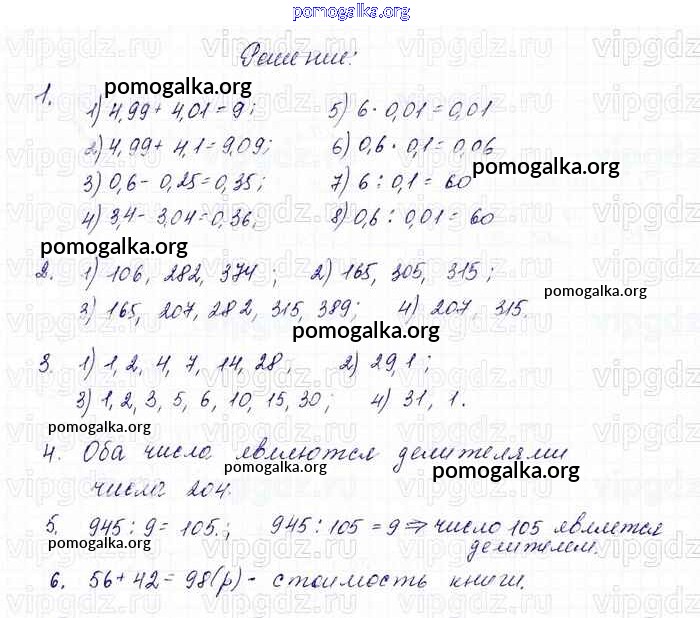 pomogalka.org
Решение:
1.
pomogalka.org
1) 4,99 + 4,01 = 9; 5) 6 · 0,01 = 0,01
2) 4,99 + 4,1 = 9,09; 6) 0,6 · 0,1 = 0,06
pomogalka.org
3) 0,6 - 0,25 = 0,35; 7) 6 : 0,1 = 60
4) 3,4 - 3,04 = 0,36; 8) 0,6 : 0,01 = 60
pomogalka.org
2. 1) 106, 282, 374; 2) 165, 305, 315;
pomogalka.org
3) 165, 207, 282, 315, 389; 4) 207, 315.
pomogalka.org
3. 1) 1, 2, 4, 7, 14, 28; 2) 29, 1;
3) 1, 2, 3, 5, 6, 10, 15, 30; 4) 31, 1.
4. Оба числа являются делителями
pomogalka.org pomogalka.org pomogalka.org
числа 204.
5. 945 : 9 = 105.; 945 : 105 = 9 ⇒ число 105 является
pomogalka.org
делителем.
6. 56 + 42 = 98 (р) - стоимость книги.
vipgdz.ru